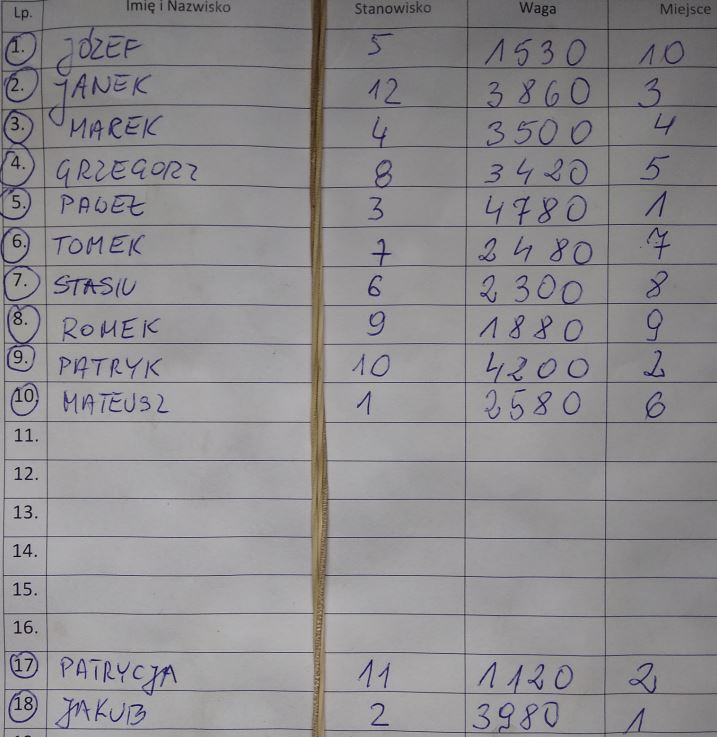 Lp. Imię i Nazwisko Stanowisko Waga Miejsce
1. JÓZEF 5 1530 10
2. JANEK 12 3860 3
3. MAREK 4 3500 4
4. GRZEGORZ 8 3420 5
5. PAWEŁ 3 4780 1
6. TOMEK 7 2480 7
7. STASIU 6 2300 8
8. ROMEK 9 1880 9
9. PATRYK 10 4200 2
10. MATEUSZ 1 2580 6
11.
12.
13.
14.
15.
16.
17 PATRYCJA 11 1120 2
18 JAKUB 2 3980 1